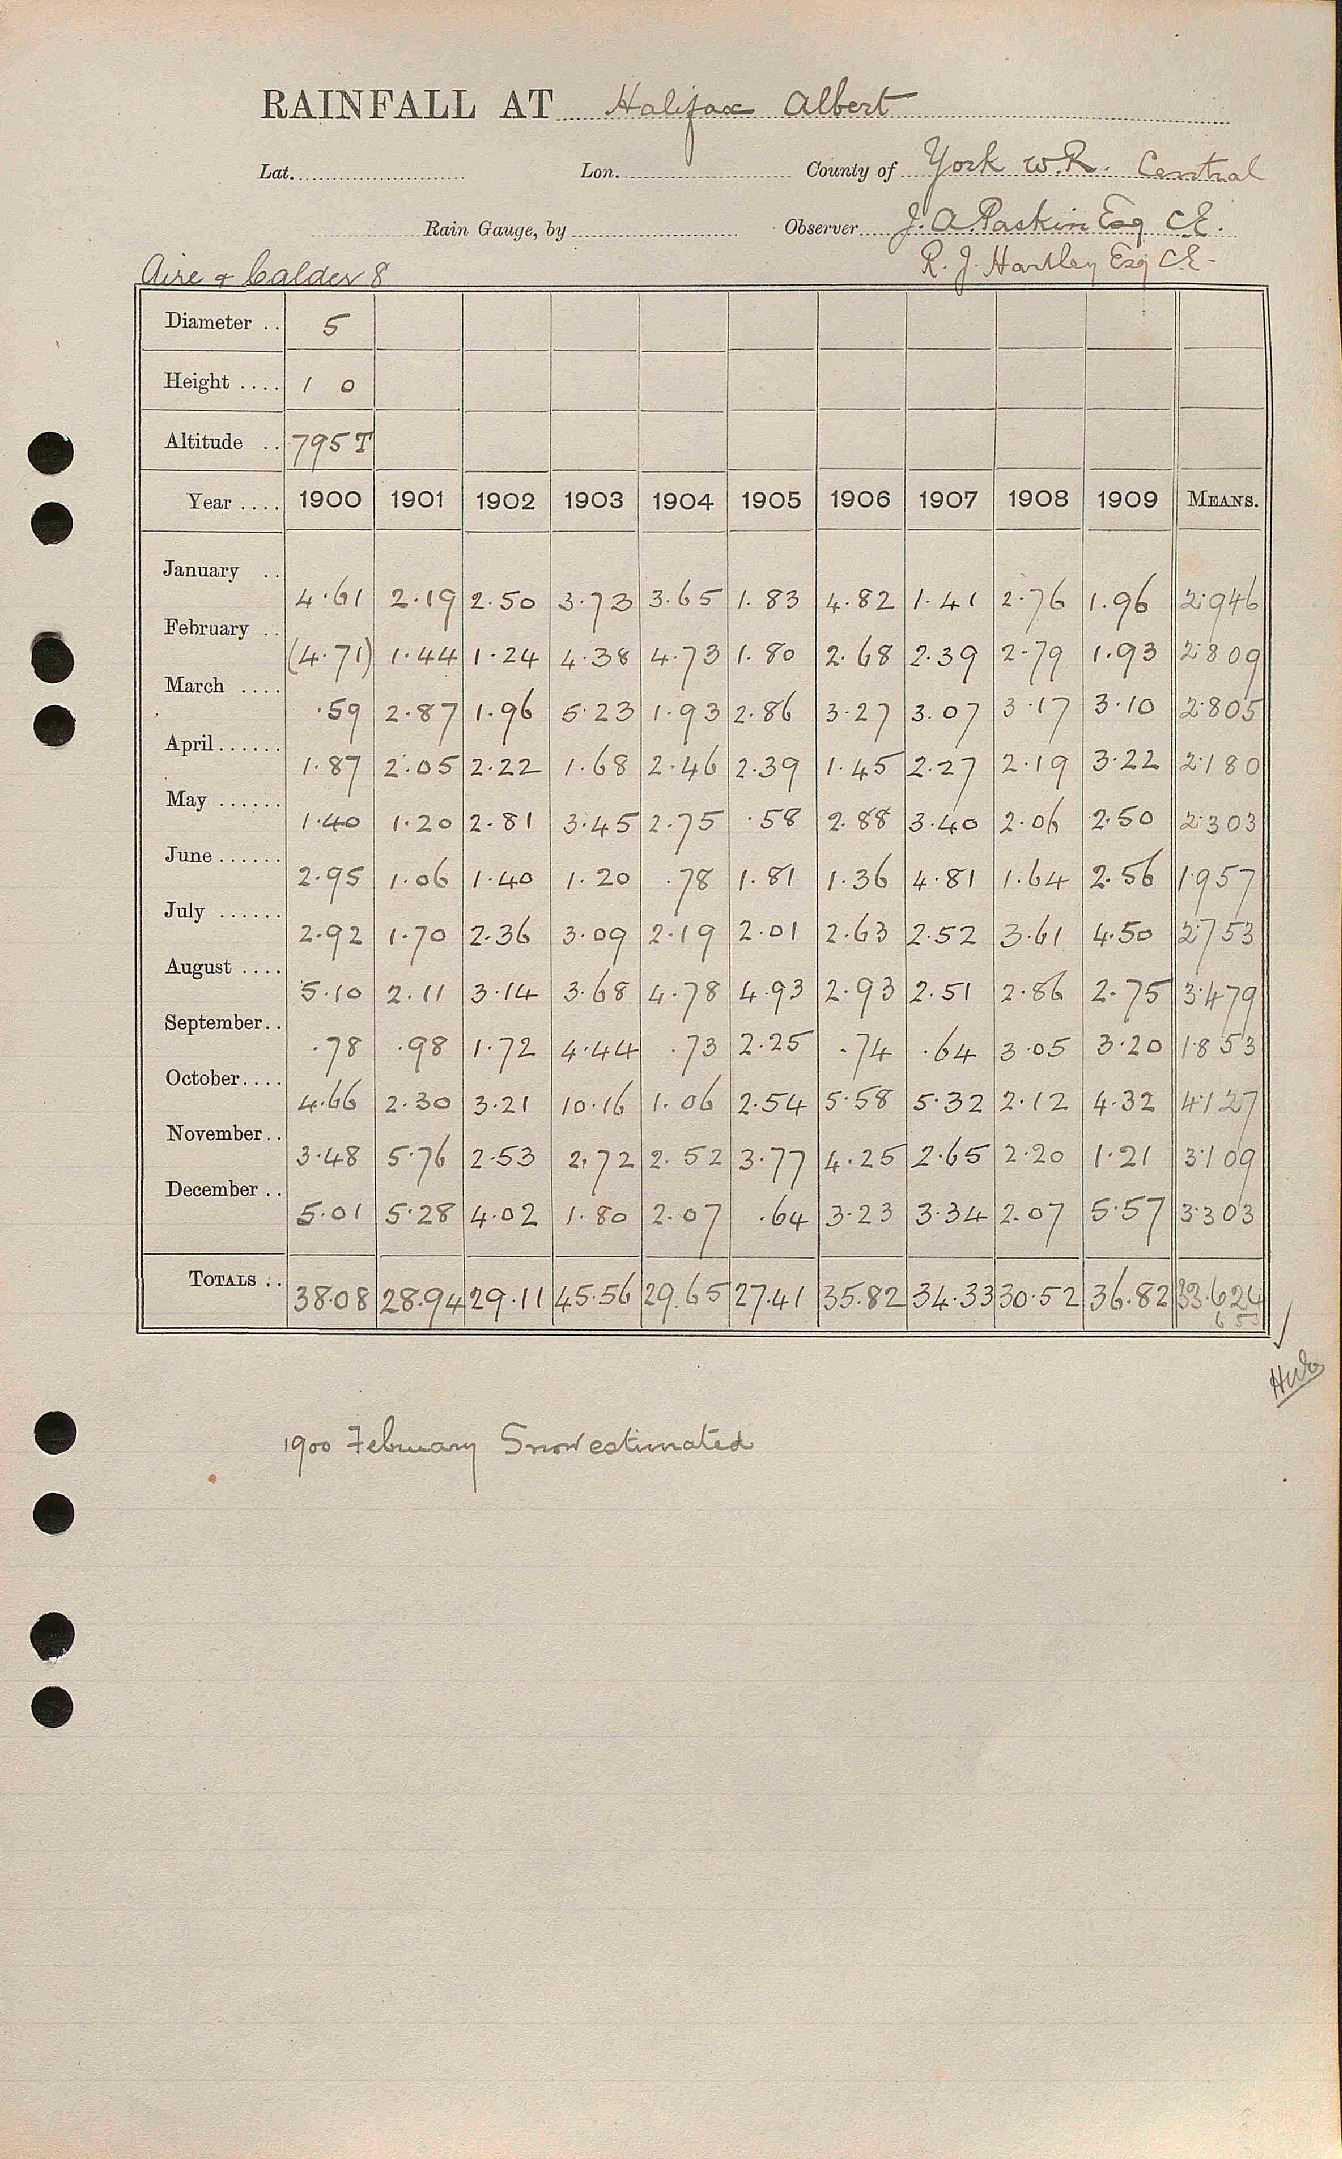 RAINFALL AT Halifax Albert
Lat. Lon. County of York W.R. Central
Rain Gauge, by Observer J. A. Paskin Esq C.E.
Aire & Calder 8 R. J. Hartley Esq C.E.
Diameter .. 5
Height .... 1 0
Altitude .. 795 T
Year .... 1900 1901 1902 1903 1904 1905 1906 1907 1908 1909 MEANS.
January .. 4.61 2.19 2.50 3.73 3.65 1.83 4.82 1.41 2.76 1.96 2.946
February .. (4.71) 1.44 1.24 4.38 4.73 1.80 2.68 2.39 2.79 1.93 2.809
March .... .59 2.87 1.96 5.23 1.93 2.86 3.27 3.07 3.17 3.10 2.805
April ...... 1.87 2.05 2.22 1.68 2.46 2.39 1.45 2.27 2.19 3.22 2.180
May ...... 1.40 1.20 2.81 3.45 2.75 .58 2.88 3.40 2.06 2.50 2.303
June ...... 2.95 1.06 1.40 1.20 .78 1.81 1.36 4.81 1.64 2.56 1.957
July ...... 2.92 1.70 2.36 3.09 2.19 2.01 2.63 2.52 3.61 4.50 2.753
August .... 5.10 2.11 3.14 3.68 4.78 4.93 2.93 2.51 2.86 2.75 3.479
September .. .78 .98 1.72 4.44 .73 2.25 .74 .64 3.05 3.20 1.853
October .... 4.66 2.30 3.21 10.16 1.06 2.54 5.58 5.32 2.12 4.32 4.127
November .. 3.48 5.76 2.53 2.72 2.52 3.77 4.25 2.65 2.20 1.21 3.109
December .. 5.01 5.28 4.02 1.80 2.07 .64 3.23 3.34 2.07 5.57 3.303
TOTALS .. 38.08 28.94 29.11 45.56 29.65 27.41 35.82 34.33 30.52 36.82 33.624
1900 February Snow estimated